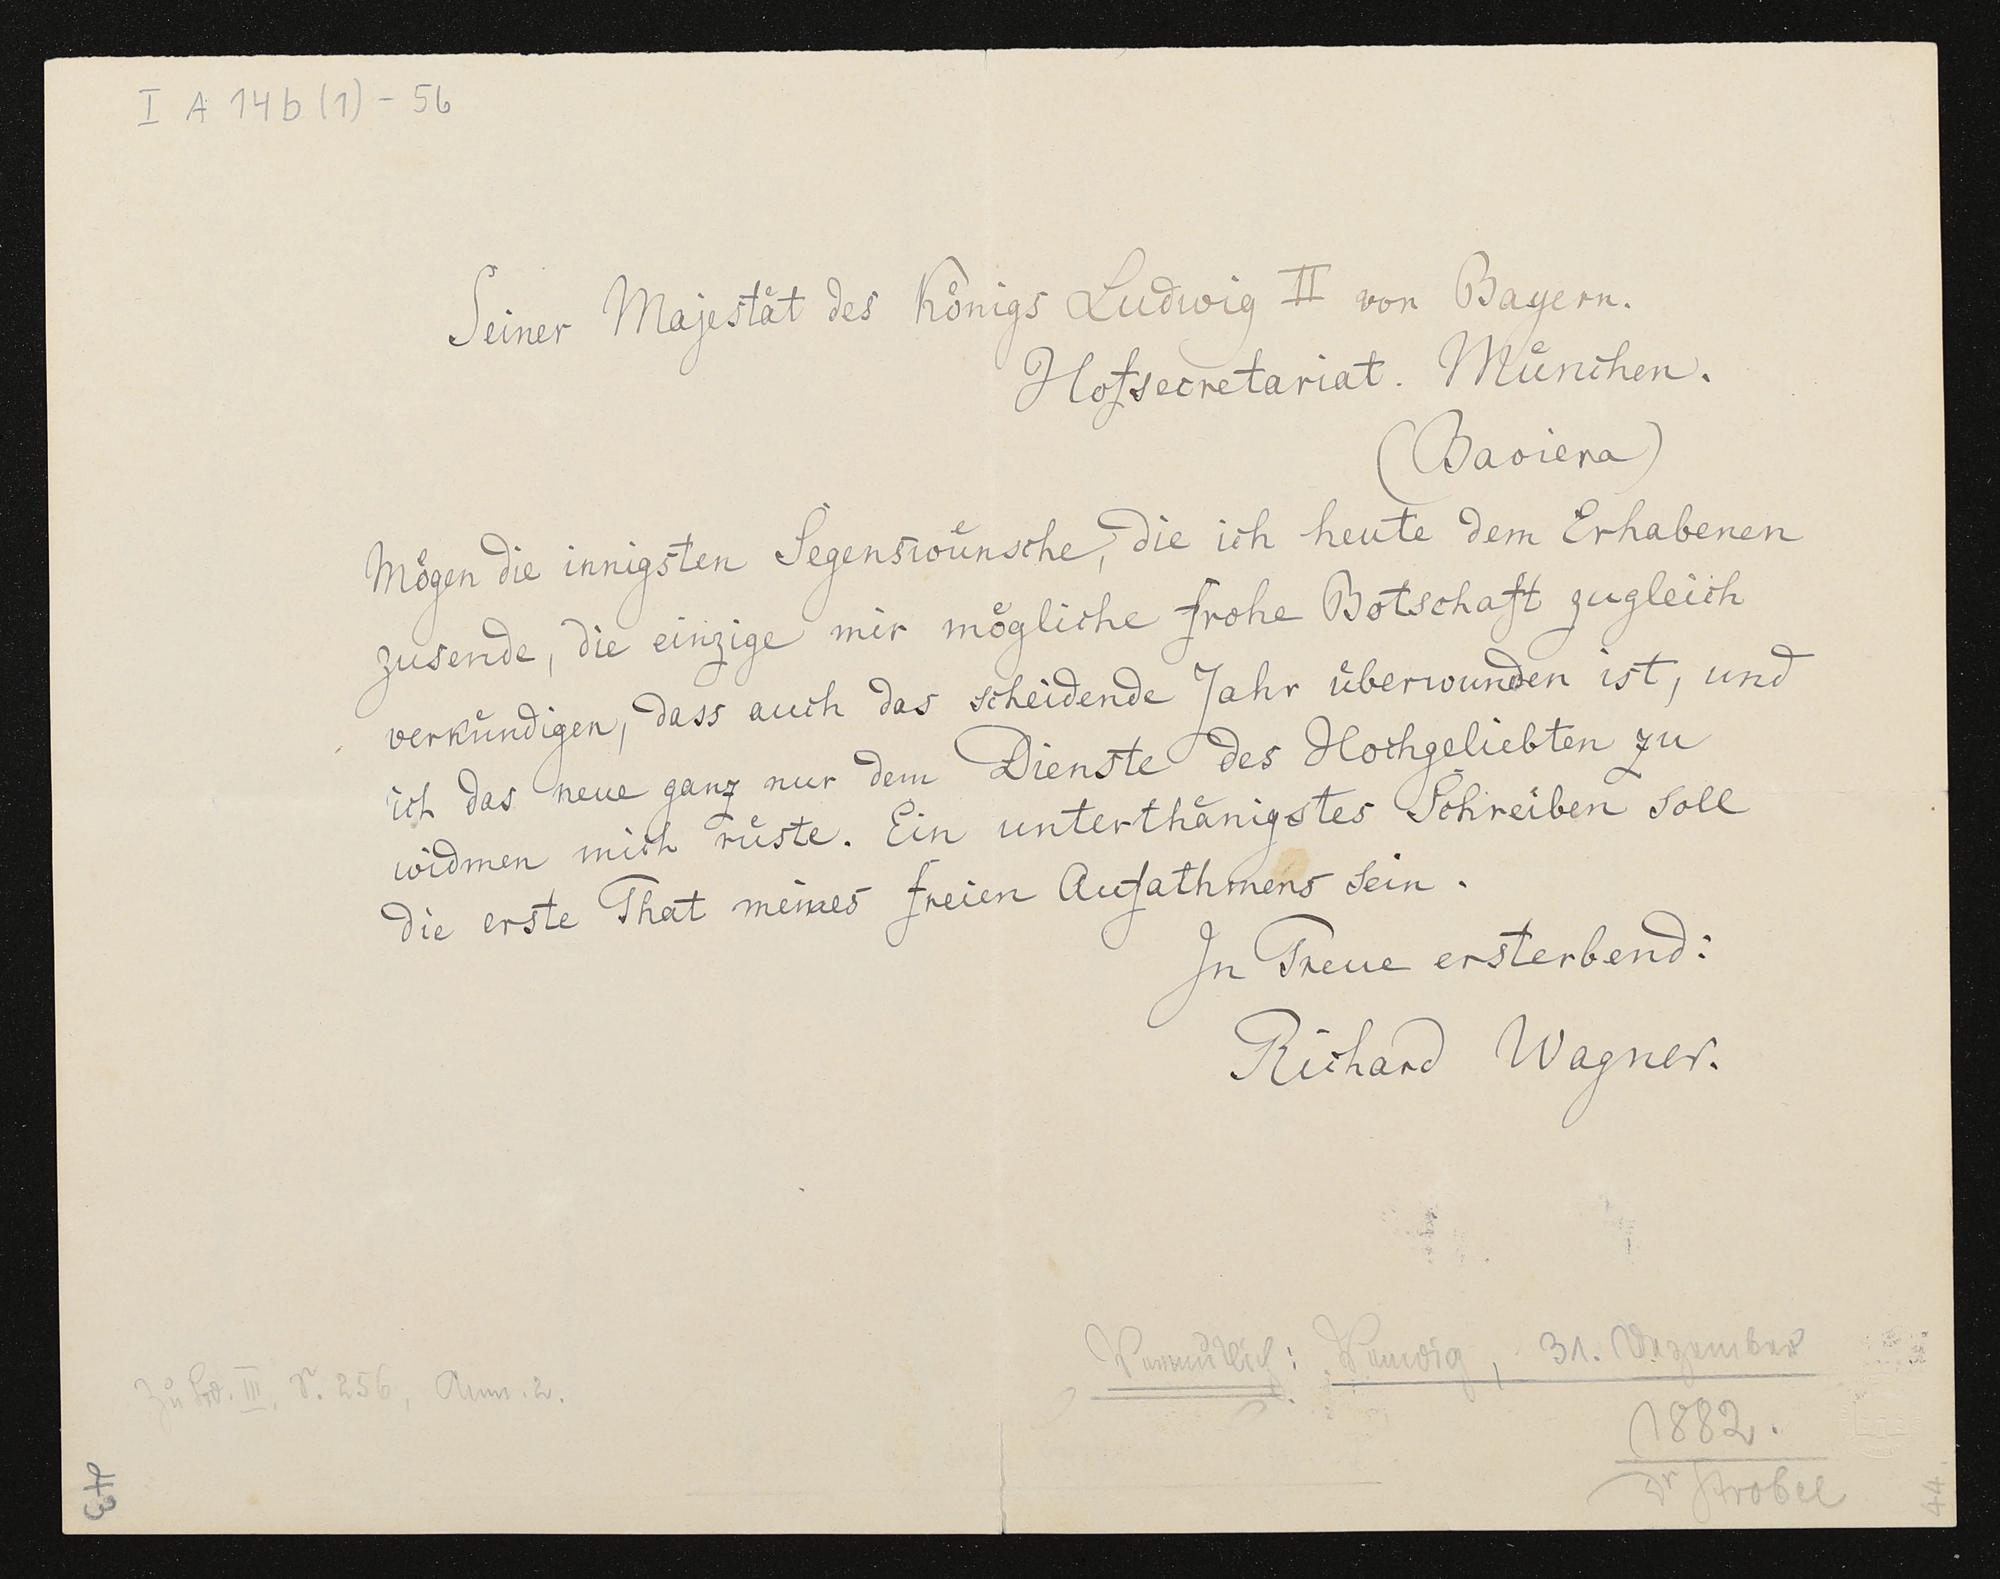 I A 14b (1) - 56
Seiner Majestät des Königs Ludwig II von Bayern.
Hofsecretariat. München.
(Baviera)
Mögen die innigsten Segenswünsche, die ich heute dem Erhabenen
zusende, die einzige mir mögliche frohe Botschaft zugleich
verkündigen, dass auch das scheidende Jahr überwunden ist, und
ich das neue ganz nur dem Dienste des Hochgeliebten zu
widmen mich rüste. Ein unterthänigstes Schreiben soll
die erste That meines freien Aufathmens sein.
In Treue ersterbend:
Richard Wagner.
Vermutlich: Venedig, 31. Dezember
1882.
Dr Strobel
Zu Bd. III, S. 256, Anm. 2.
44